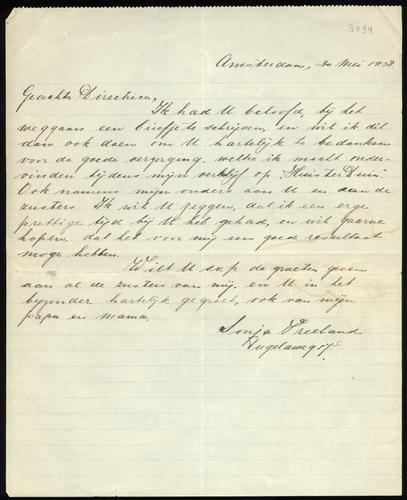 3094
Amsterdam, 30 Mei 1938.
Geachte Directrice,
Ik had U beloofd, bij het
weggaan een briefje te schrijven, en wil ik dit
dan ook doen om U hartelijk te bedanken
voor de goede verzorging, welke ik mocht onder-
vinden tijdens mijn verblijf op "Huis ter Duin".
Ook namens mijn ouders aan U en aan de
zusters. Ik wil U zeggen, dat ik een erge
prettige tijd bij U heb gehad, en wil gaarne
hopen, dat het voor mij een goede resultaat
moge hebben.
Wilt U s.v.p. de groeten geven
aan al de zusters van mij, en U in het
byzonder hartelijk gegroet, ook van mijn
papa en mama.
Sonja Vreeland